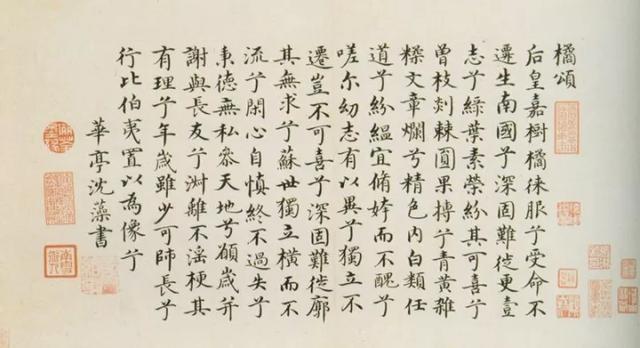 橘頌
后皇嘉樹橘徠服兮受命不
遷生南國兮深固難徙更壹
志兮綠葉素榮紛其可喜兮
曾枝剡棘圓果摶兮青黃雜
糅文章爛兮精色內白類任
道兮紛緼宜脩姱而不醜兮
嗟尔幼志有以異兮獨立不
遷豈不可喜兮深固難徙廓
其無求兮蘇世獨立橫而不
流兮閑心自慎終不過失兮
秉德無私參天地兮願歲并
謝與長友兮淑離不淫梗其
有理兮年歲雖少可師長兮
行比伯夷置以為像兮
華亭沈藻書